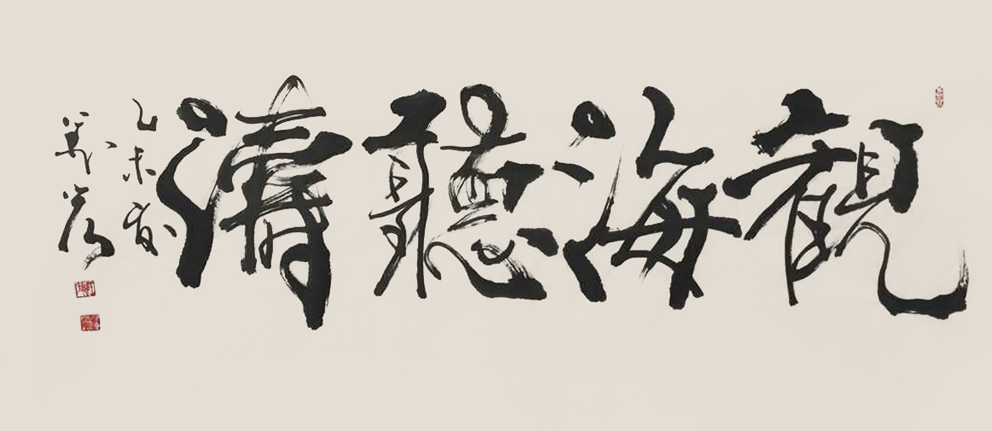 觀海聽濤
乙未夏